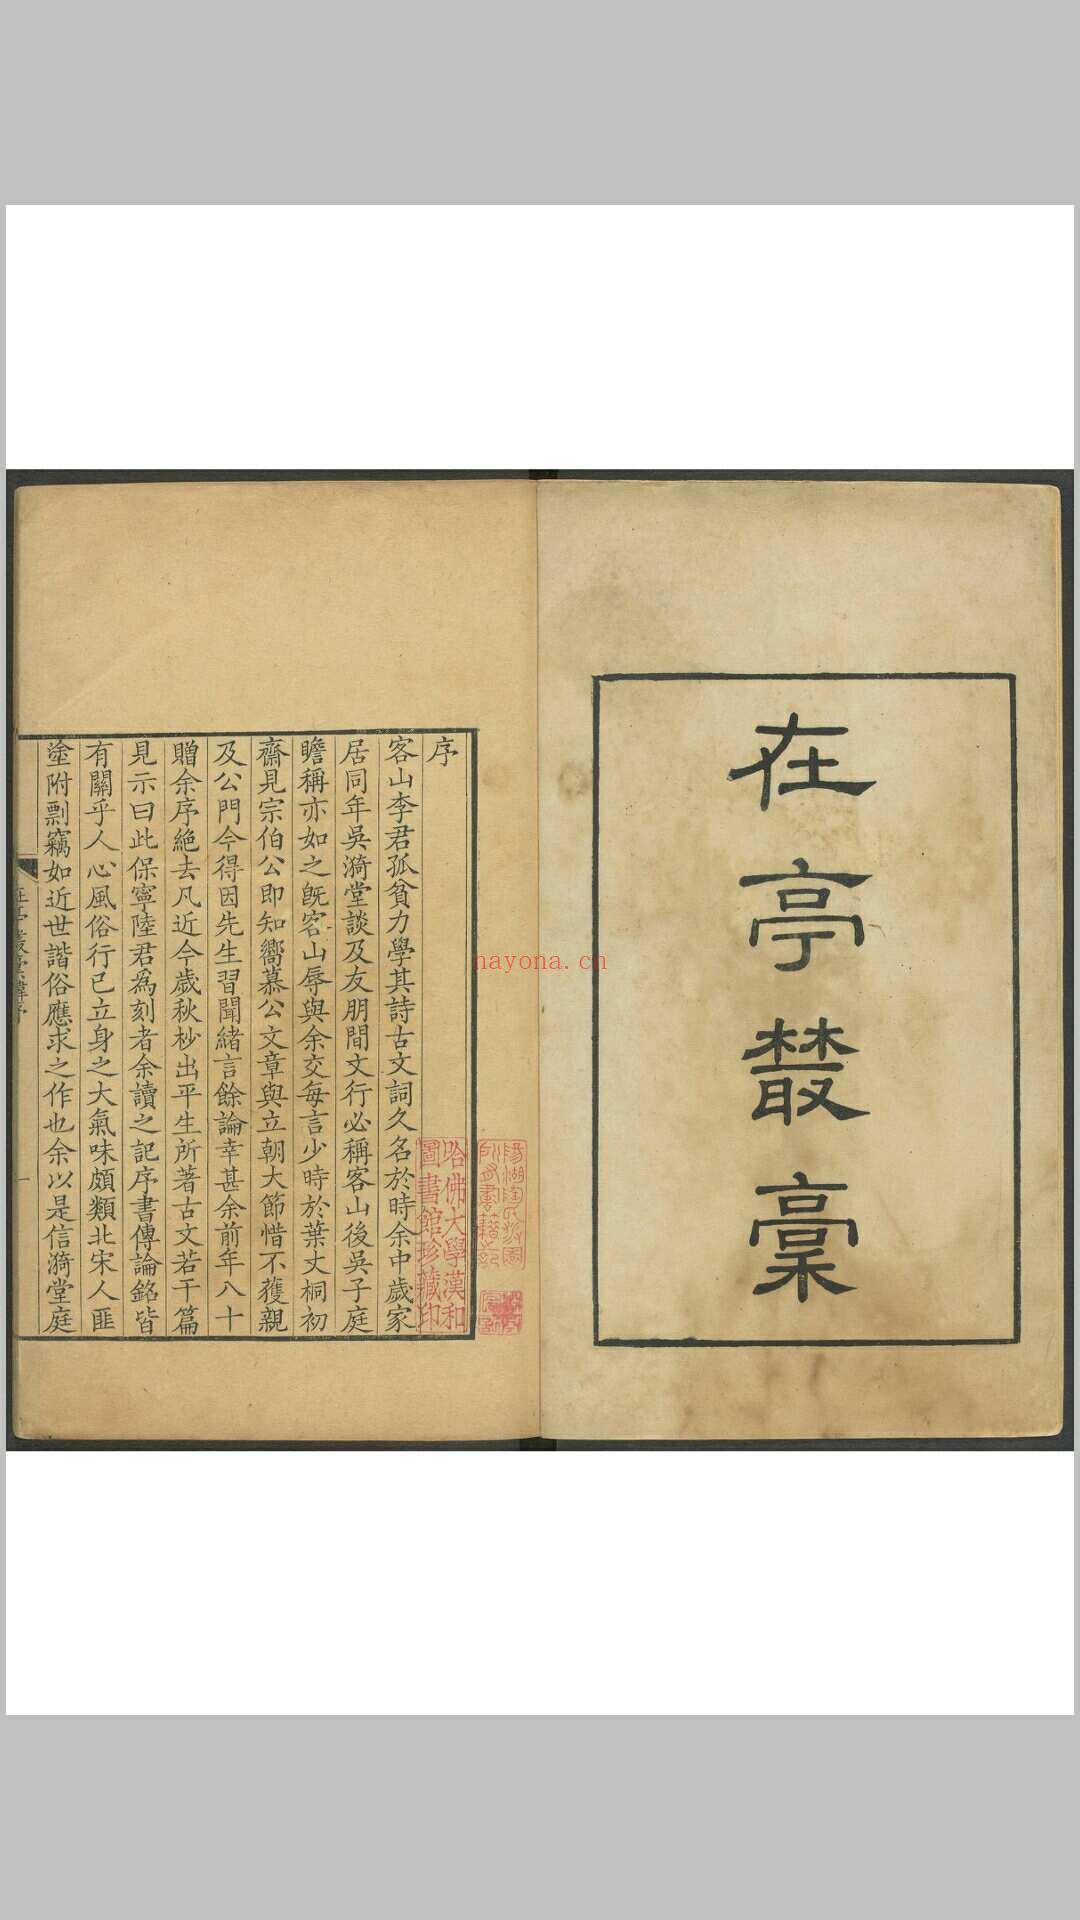 在亭叢稾
序
客山李君孤貧力學其詩古文詞久名於時余中歲家
居同年吳漪堂談及友朋間文行必稱客山後吳子庭
瞻稱亦如之旣客山辱與余交每言少時於葉丈桐初
齋見宗伯公即知嚮慕公文章與立朝大節惜不獲親
及公門今得因先生習聞緒言餘論幸甚余前年八十
贈余序絶去凡近今歲秋杪出平生所著古文若干篇
見示曰此保寧陸君爲刻者余讀之記序書傳論銘皆
有關乎人心風俗行已立身之大氣味頗類北宋人匪
塗附剽竊如近世諧俗應求之作也余以是信漪堂庭
哈佛大學漢和
圖書館珍藏印
nayona.cn